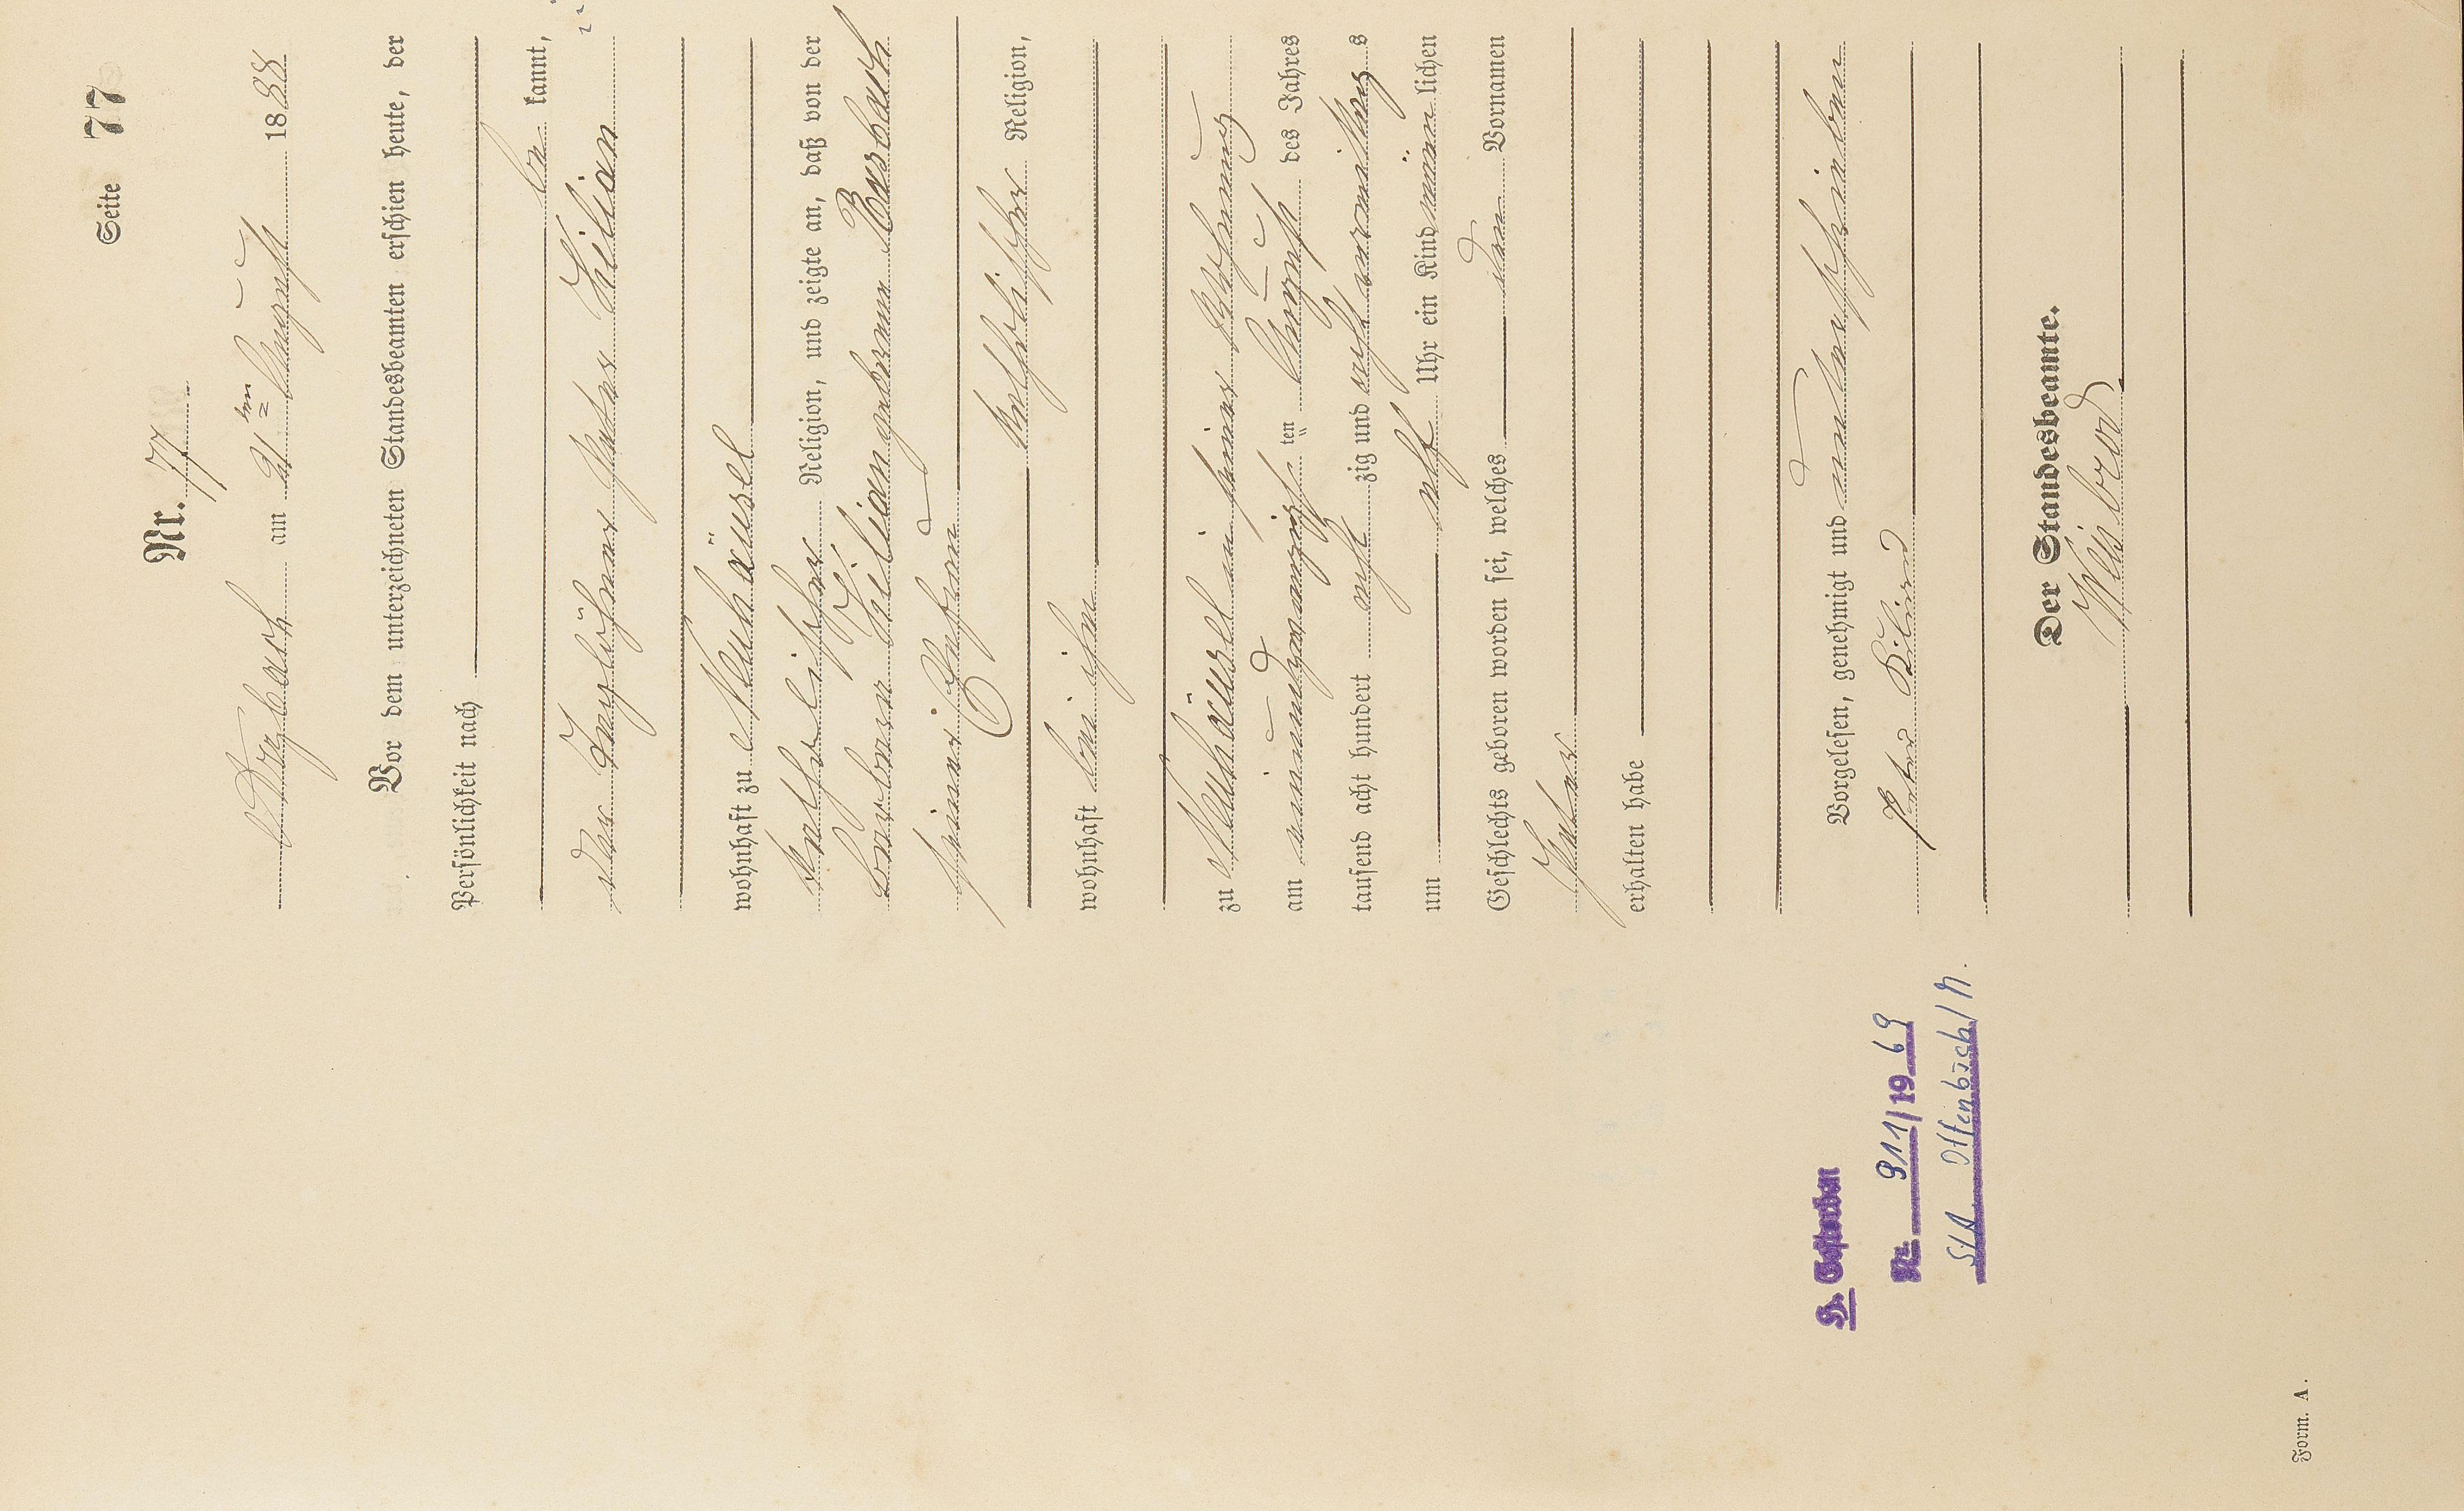 Seite 77
Nr. 77.
Arzbach am 21ten August 1888
Vor dem unterzeichneten Standesbeamten erschien heute, der
Persönlichkeit nach
be kannt,
der Taglöhner Peter Kilian
wohnhaft zu Neuhäusel
katholischer Religion, und zeigte an, daß von der
Barbara Kilian geborene Busbach
seiner Ehefrau
katholischer Religion,
wohnhaft bei ihm
zu Neuhäusel in seiner Wohnung
am einundzwanzigsten August des Jahres
tausend acht hundert acht zig und acht vormittags
um elf Uhr ein Kind männlichen
Geschlechts geboren worden sei, welches den Vornamen
Peter
erhalten habe
Vorgelesen, genehmigt und unterschrieben
Peter Kilian
Der Standesbeamte.
H. Gestorben
Nr. 911/1969
StA. Offenbach/M.
Form. A.